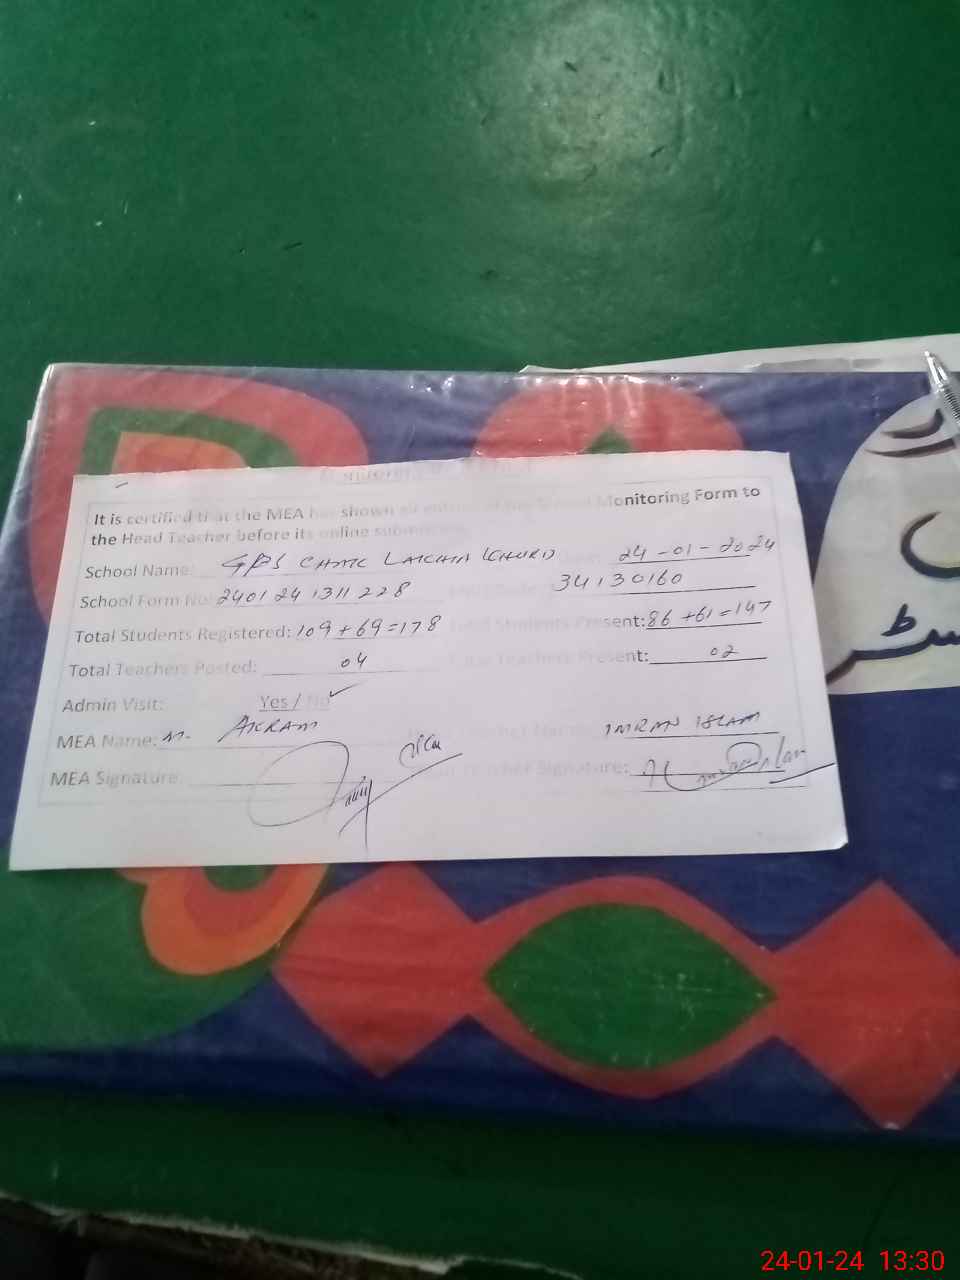 It is certified that the MEA has shown all entries of the School Monitoring Form to
the Head Teacher before its online submission.
School Name: GPS CHAK LAKHA KHURD 24-01-2024
School Form No: 2401241311228 34130160
Total Students Registered: 109+69=178 Total Students Present: 86+61=147
Total Teachers Posted: 04 Total Teachers Present: 02
Admin Visit: Yes / No ✓
MEA Name: M. AKRAM Teacher Name: IMRAN ISLAM
MEA Signature: Head Teacher Signature:
24-01-24 13:30